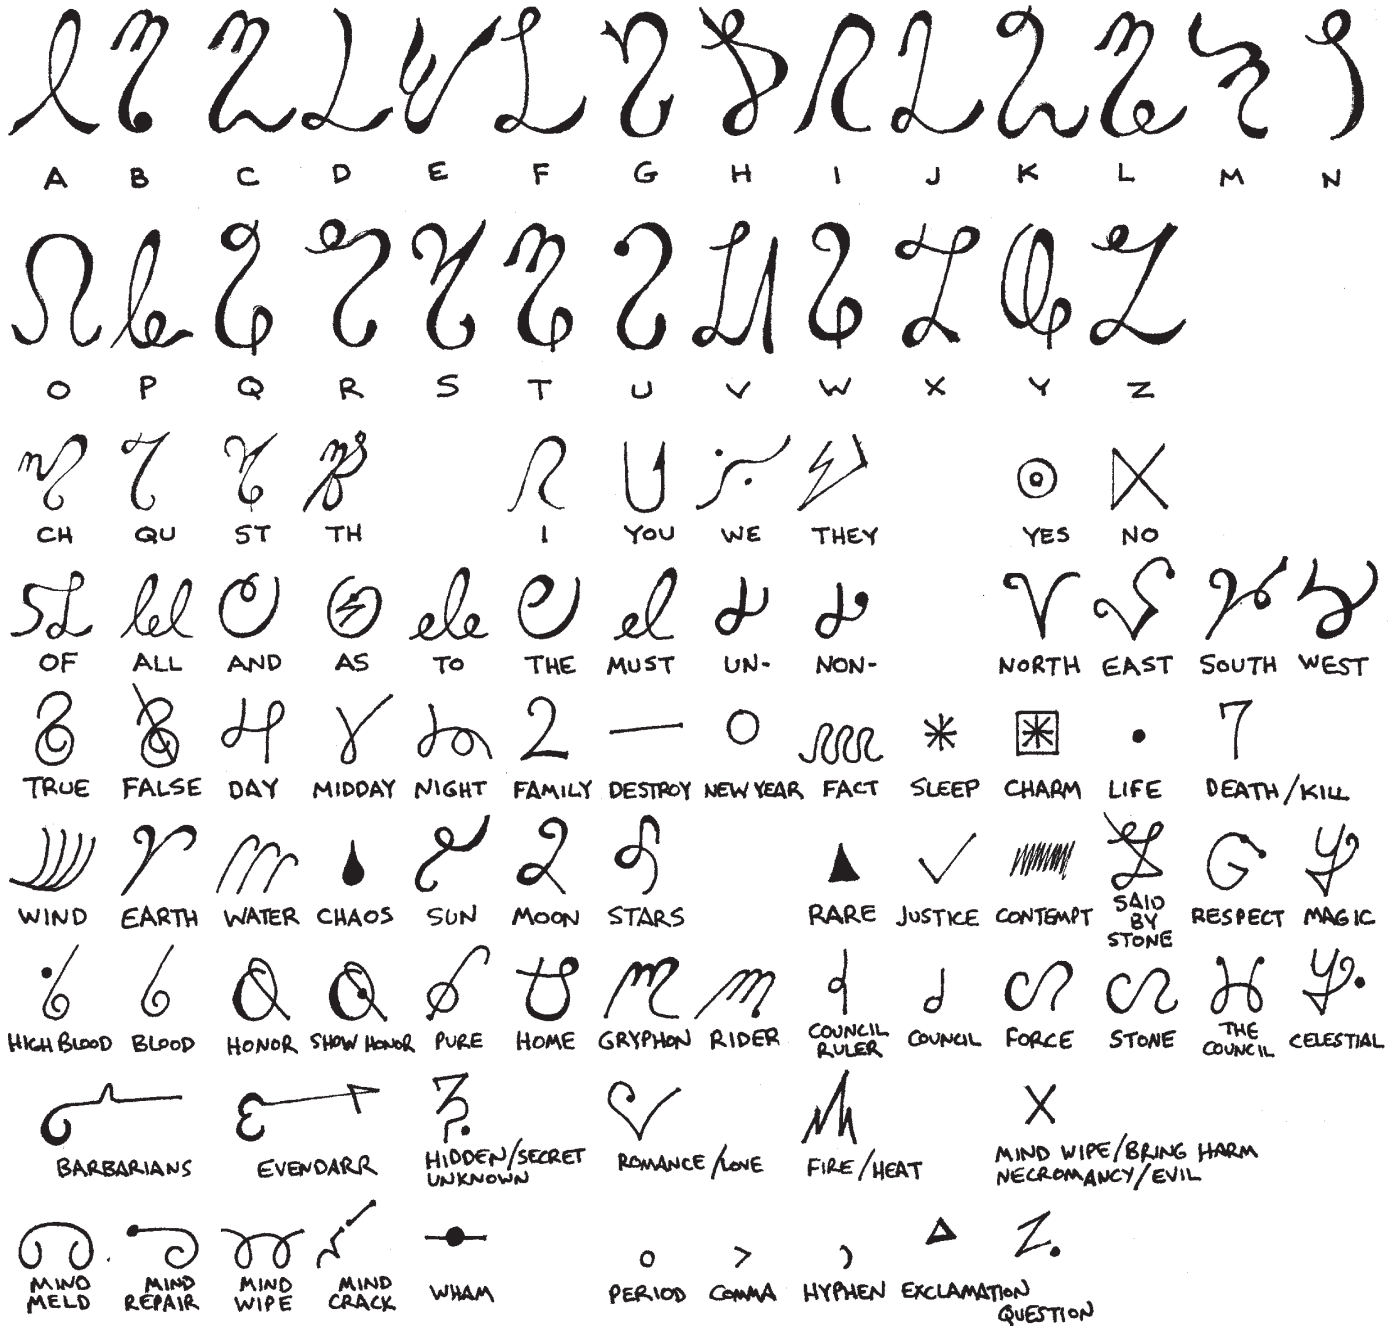 A B C D E F G H I J K L M N
O P Q R S T U V W X Y Z
CH QU ST TH I YOU WE THEY YES NO
OF ALL AND AS TO THE MUST UN- NON- NORTH EAST SOUTH WEST
TRUE FALSE DAY MIDDAY NIGHT FAMILY DESTROY NEW YEAR FACT SLEEP CHARM LIFE DEATH/KILL
WIND EARTH WATER CHAOS SUN MOON STARS RARE JUSTICE CONTEMPT SAID BY STONE RESPECT MAGIC
HIGH BLOOD BLOOD HONOR SHOW HONOR PURE HOME GRYPHON RIDER COUNCIL RULER COUNCIL FORCE STONE THE COUNCIL CELESTIAL
BARBARIANS EVENDARR HIDDEN/SECRET UNKNOWN ROMANCE/LOVE FIRE/HEAT MIND WIPE/BRING HARM NECROMANCY/EVIL
MIND MELD MIND REPAIR MIND WIPE MIND CRACK WHAM PERIOD COMMA HYPHEN EXCLAMATION QUESTION